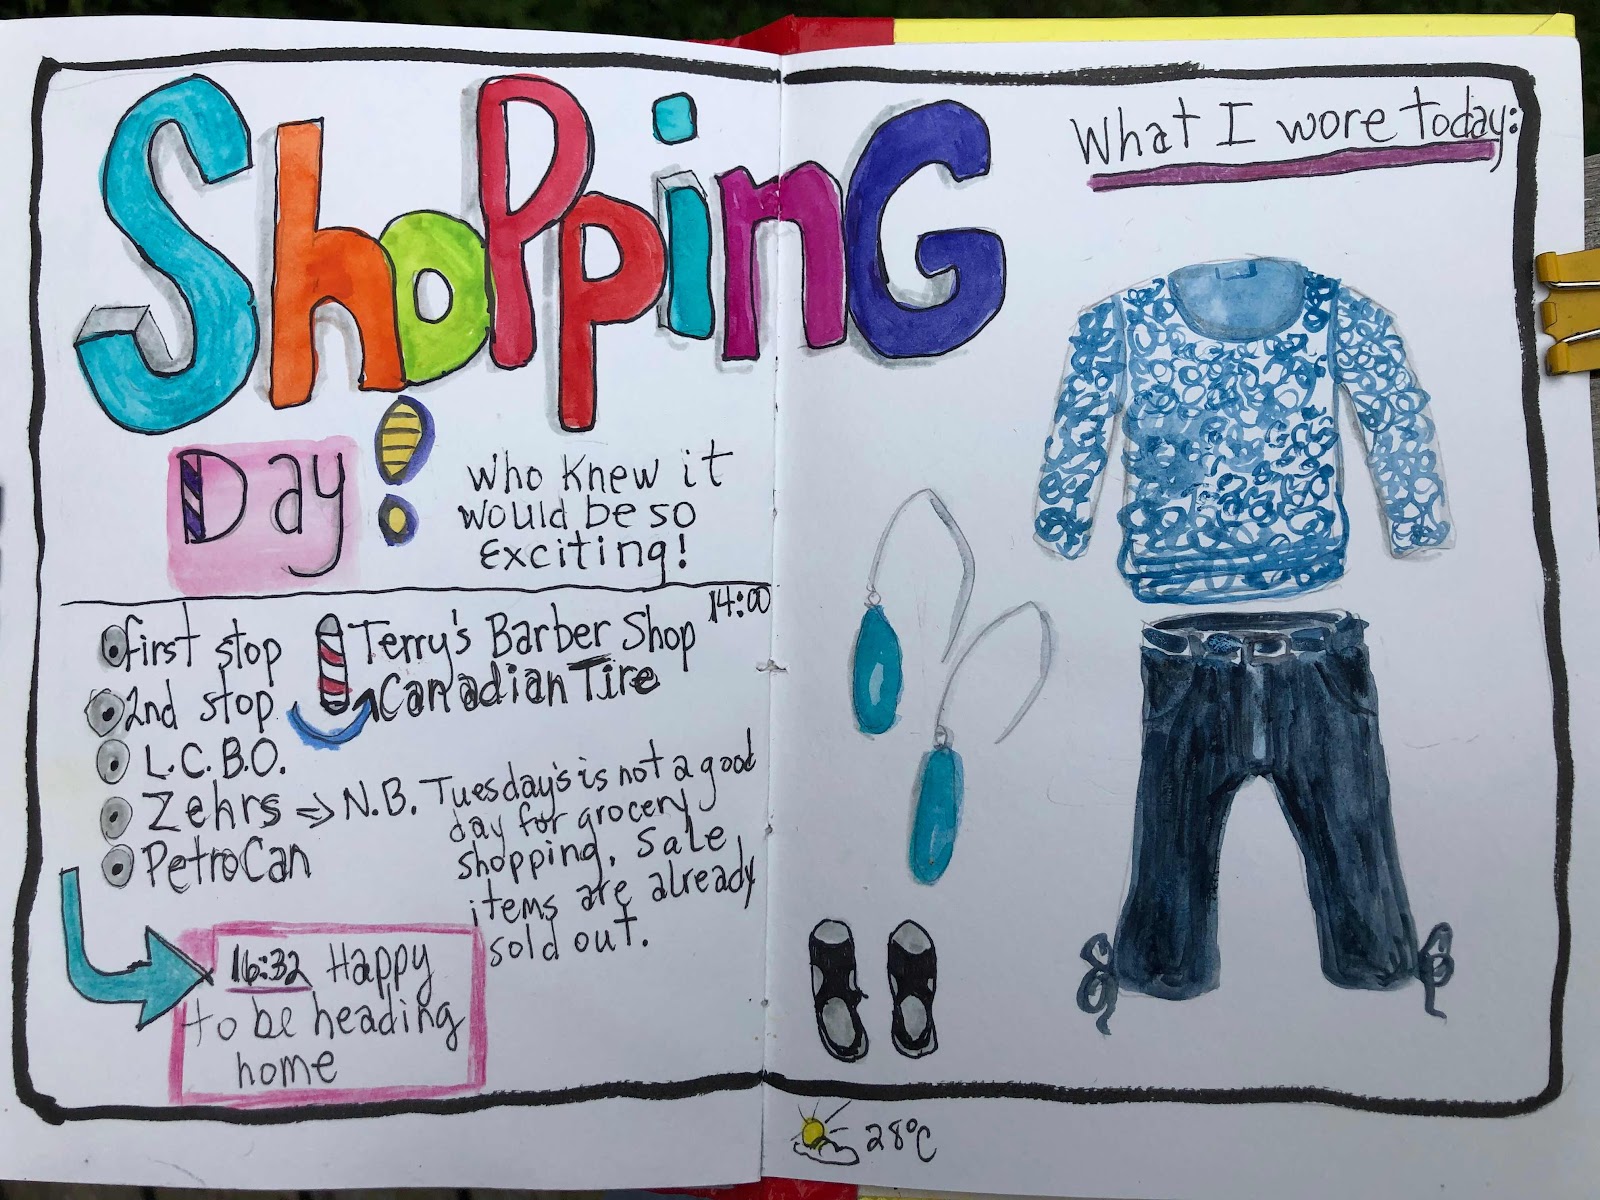 Shopping
Day!
Who knew it
would be so
exciting!
14:00
first stop Terry's Barber Shop
2nd stop Canadian Tire
L.C.B.O.
Zehrs ⇒ N.B. Tuesday's is not a good
day for grocery
shopping. Sale
items are already
sold out.
PetroCan
16:32 Happy
to be heading
home
What I wore today:
28°C